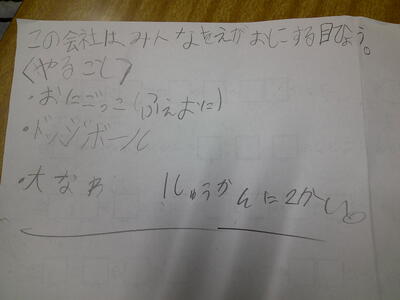 この会社は、みんなをえがおにする目ひょう。
〈やること〉
・おにごっこ(ふえおに)
・ドッジボール
・大なわ 1しゅうかんに2かい。